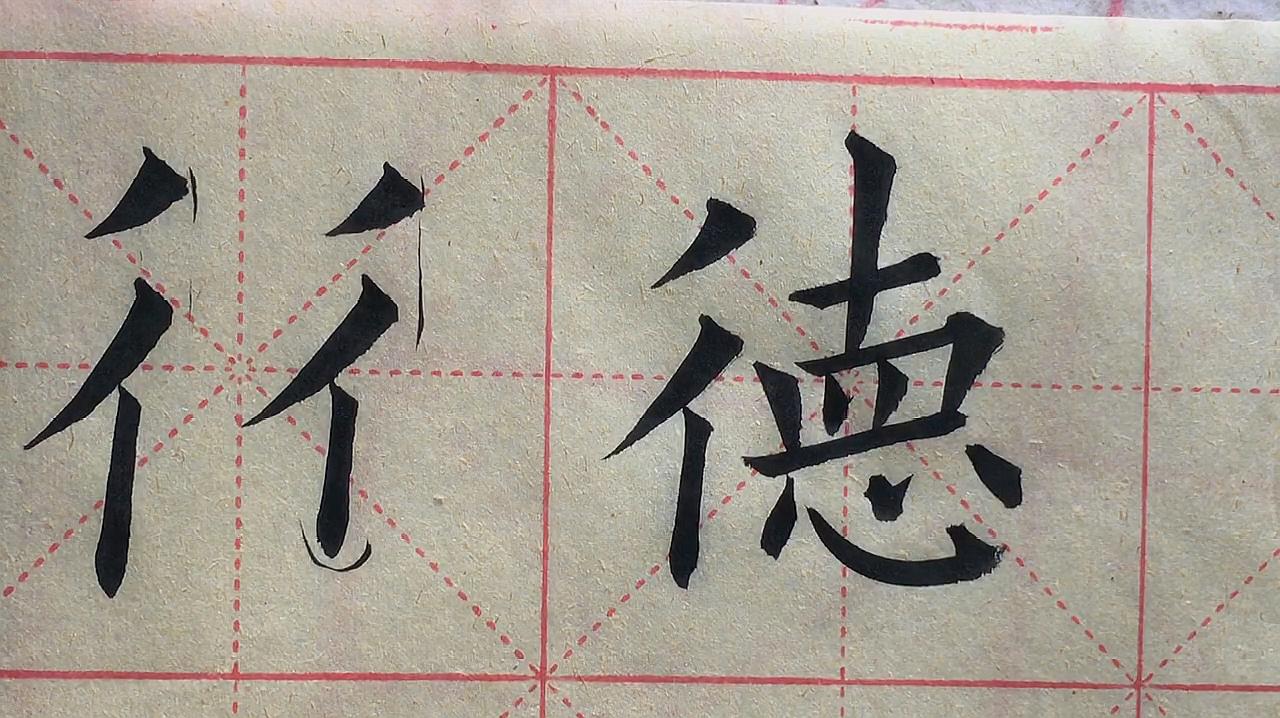 彳彳德